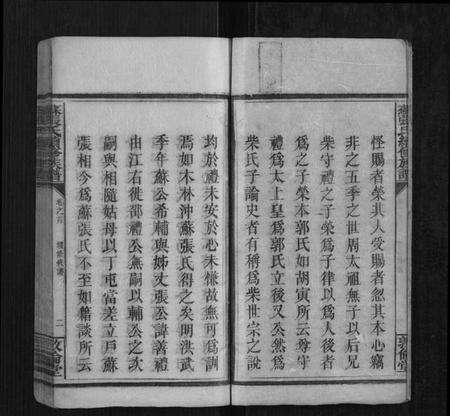 怪賜者榮其人受賜者忽其本心竊
非之五季之世周太祖無子以后兄
柴守禮之子榮爲子律以爲人後者
禮爲之子榮本郭氏如胡寅所云尊守
禮爲太上皇爲郭氏立後又公然爲
柴氏子論史者有稱爲柴世宗之說
均於禮未安於心未慊故無可爲訓
焉如木林沖蘇張氏得之矣明洪武
季年蘇公希輔與姊丈張公諱善禮
由江右徙邵禮公無嗣以輔公之次
嗣與相隨姑母以丁屯當差立戶蘇
張相今爲蘇張氏不至如籍談所云
卷之首
二
敦倫堂